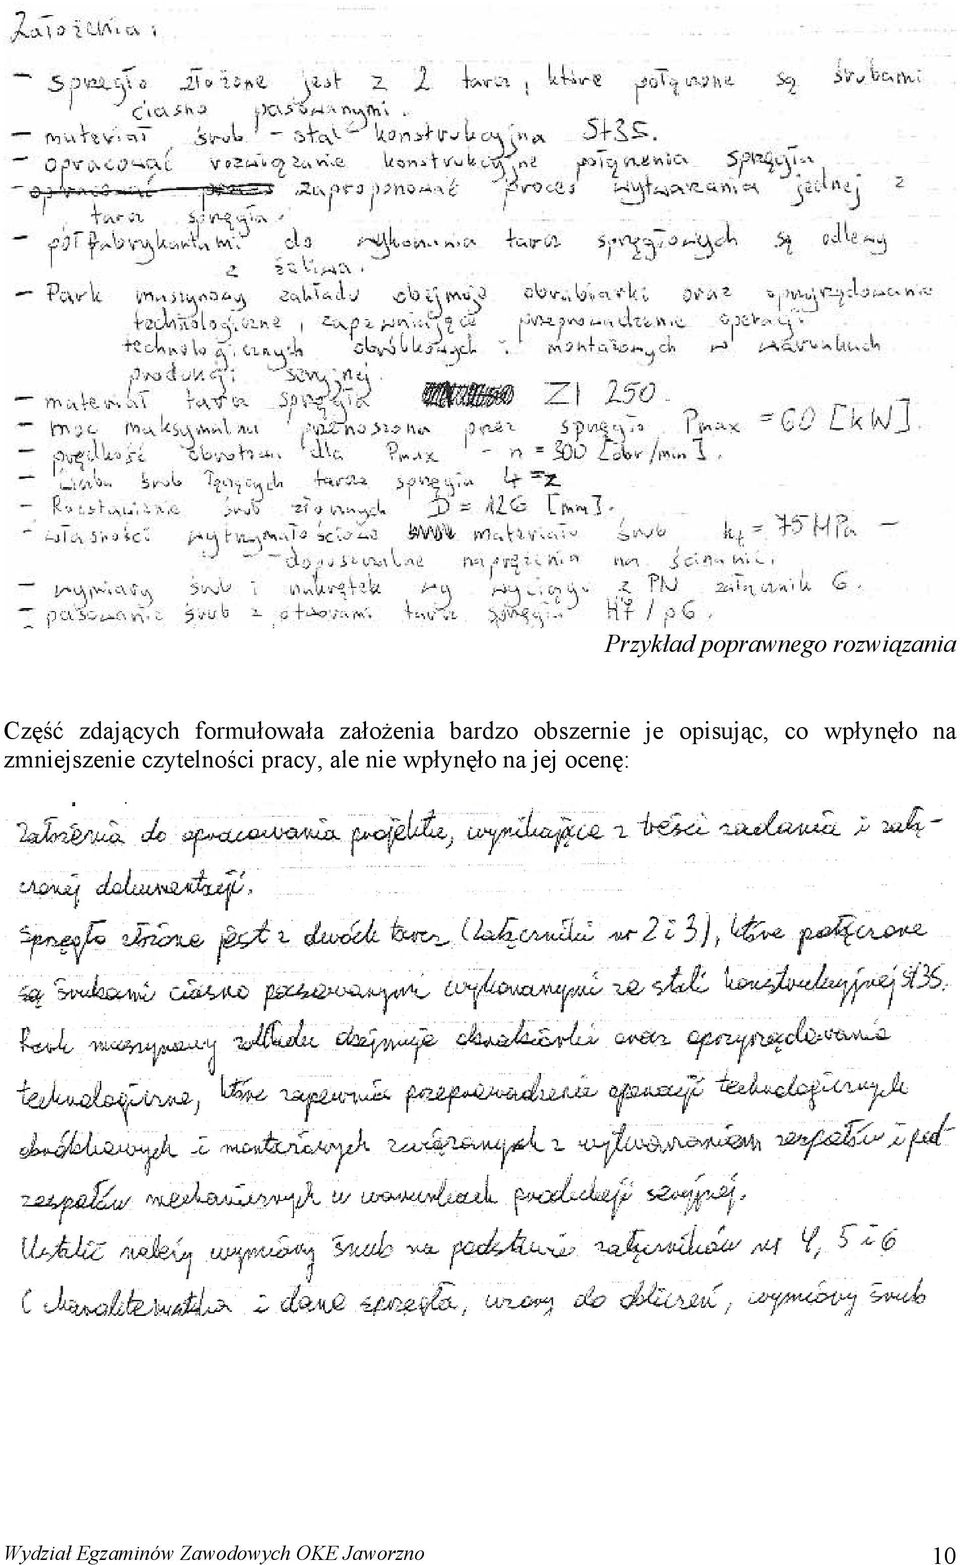 Założenia:
- Sprzęgło złożone jest z 2 tarcz, które połączone są śrubami
ciasno pasowanymi.
- materiał śrub - stal konstrukcyjna St3S.
- opracować rozwiązanie konstrukcyjne połączenia sprzęgła
- opracować proces zaproponować proces wytwarzania jednej z
tarcz sprzęgła.
- półfabrykantami do wykonania tarcz sprzęgłowych są odlewy
z żeliwa.
- Park maszynowy zakładu obejmuje obrabiarki oraz oprzyrządowanie
technologiczne, zapewniające przeprowadzenie operacji
technologicznych obróbkowych i montażowych w warunkach
produkcji seryjnej.
- materiał tarcz sprzęgła Zl 250.
- moc maksymalna przenoszona przez sprzęgło Pmax = 60 [kW].
- prędkość obrotowa dla Pmax - n = 300 [obr/min].
- Liczba śrub łączących tarcze sprzęgła 4 = z
- Rozstawienie śrub złącznych D = 126 [mm].
- własności wytrzymałościowe materiału śrub kt = 75 MPa
- dopuszczalne naprężenia na ścinanie.
- wymiary śrub i nakrętek wg wyciągu z PN załącznik 6.
- pasowanie śrub z otworami tarcz sprzęgła H7/p6.
Przykład poprawnego rozwiązania
Część zdających formułowała założenia bardzo obszernie je opisując, co wpłynęło na
zmniejszenie czytelności pracy, ale nie wpłynęło na jej ocenę:
Założenia do opracowania projektu, wynikające z treści zadania i załą-
czonej dokumentacji.
Sprzęgło złożone jest z dwóch tarcz (Załączniki nr 2 i 3), które połączone
są śrubami ciasno pasowanymi wykonanymi ze stali konstrukcyjnej St3S.
Park maszynowy zakładu obejmuje obrabiarki oraz oprzyrządowania
technologiczne, które zapewnia przeprowadzenie operacji technologicznych
obróbkowych i montażowych związanych z wytwarzaniem zespołów i pod-
zespołów mechanicznych w warunkach produkcji seryjnej.
Ustalić należy wymiary śrub na podstawie załączników nr 4, 5 i 6
(charakterystyka i dane sprzęgła, wzory do obliczeń, wymiary śrub
Wydział Egzaminów Zawodowych OKE Jaworzno 10